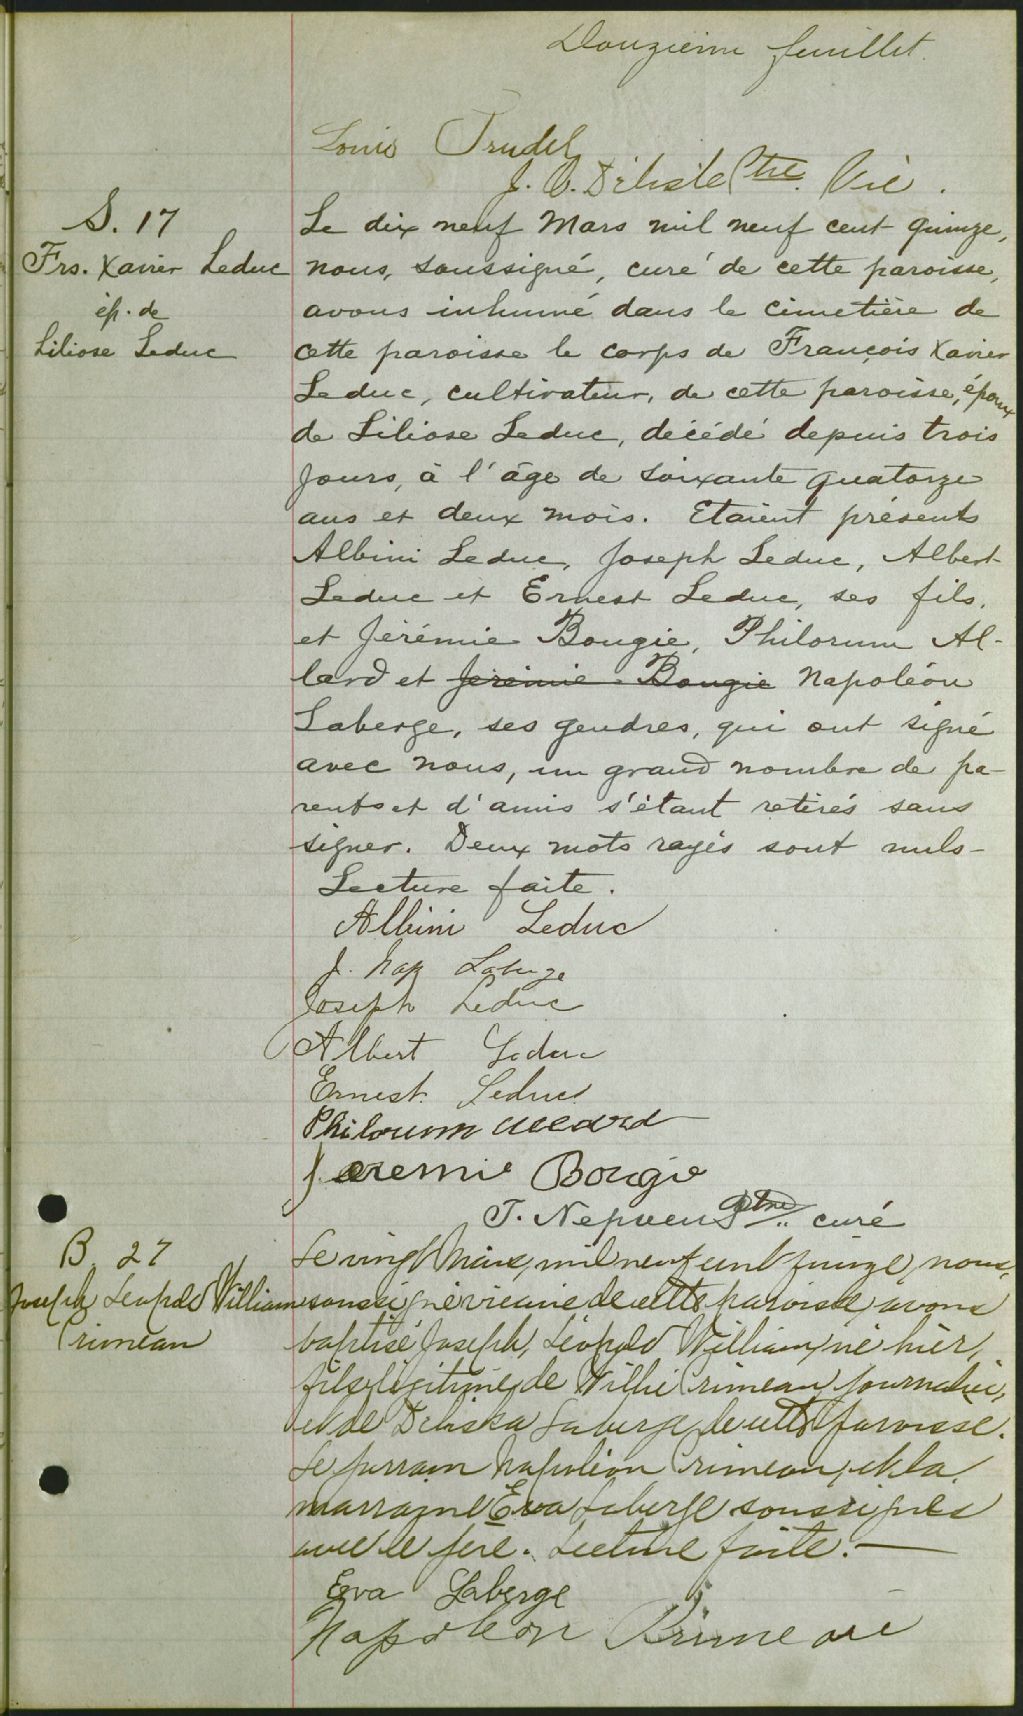 Douzième feuillet.
Louis Trudel
J. Délisle Ptre Vic.
S. 17
Frs. Xavier Leduc
ép. de
Liliose Leduc
Le dix neuf Mars mil neuf cent quinze,
nous, soussigné, curé de cette paroisse,
avons inhumé dans le cimetière de
cette paroisse le corps de François Xavier
Leduc, cultivateur, de cette paroisse, époux
de Liliose Leduc, décédé depuis trois
jours, à l'âge de soixante quatorze
ans et deux mois. Etaient présents
Albini Leduc, Joseph Leduc, Albert
Leduc et Ernest Leduc, ses fils,
et Jérémie Bougie, Philorum Al-
lard et Jérémie Bougie Napoléon
Laberge, ses gendres, qui ont signé
avec nous, un grand nombre de pa-
rents et d'amis s'étant retirés sans
signer. Deux mots rayés sont nuls-
Lecture faite.
Albini Leduc
J. Nap Laberge
Joseph Leduc
Albert Leduc
Ernest Leduc
Philorum Allard
Jeremie Bougie
T. Nepveu Ptre curé
B. 27
Joseph Leopold William
Primeau
Le vingt Mars, mil neuf cent quinze, nous,
soussigné vicaire de cette paroisse avons
baptisé Joseph, Léopold William, né hier,
fils légitime de Willie Primeau, journalier,
et de Deliska Laberge, de cette paroisse.
Le parrain Napoléon Primeau, et la
marraine Eva Laberge soussignés
avec le père. Lecture faite.—
Eva Laberge
Napoleon Primeau